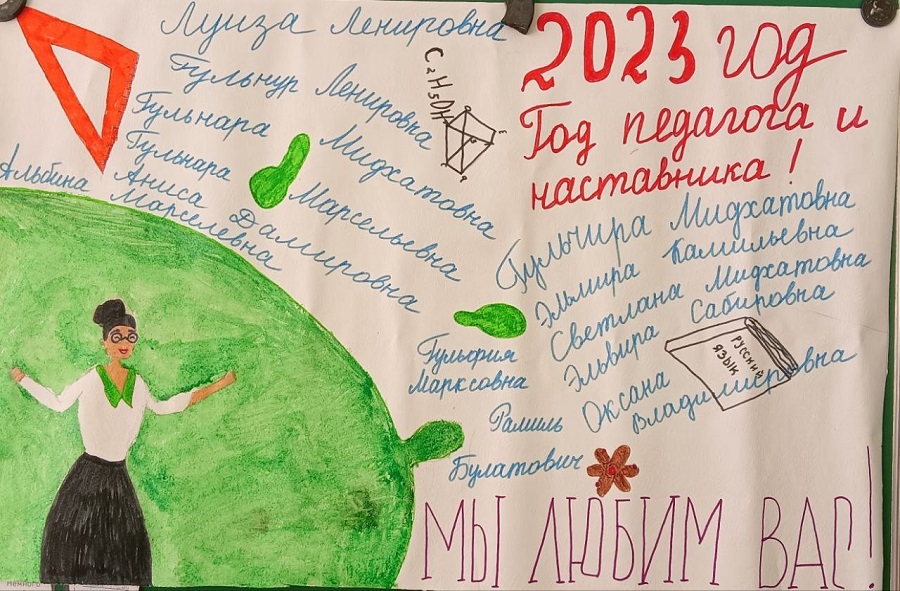 Луиза Ленировна
Гульнур Ленировна
Гульнара Мидхатовна
Гульнара Марсельевна
Аниса Дамировна
Альбина Марселевна
C₂H₅OH
2023 год
Год педагога и
наставника!
Гульчира Мидхатовна
Эльмира Камильевна
Светлана Мидхатовна
Эльвира Сабировна
Оксана
Владимировна
русский
язык
Гульфия
Марксовна
Рамиль
Булатович
МЫ ЛЮБИМ ВАС!